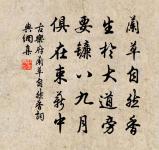 蘭草自然香
生於大道旁
要鐮八九月
俱在束薪中
古樂府蘭草自然香詞